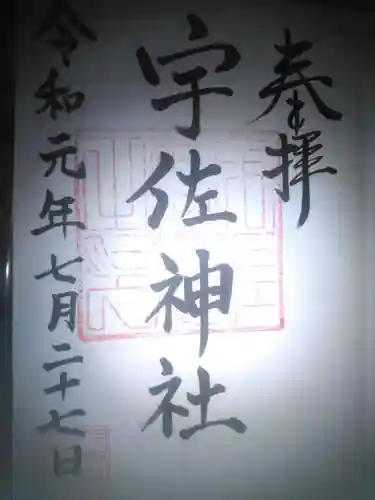 奉拝
宇佐神社
令和元年七月二十七日